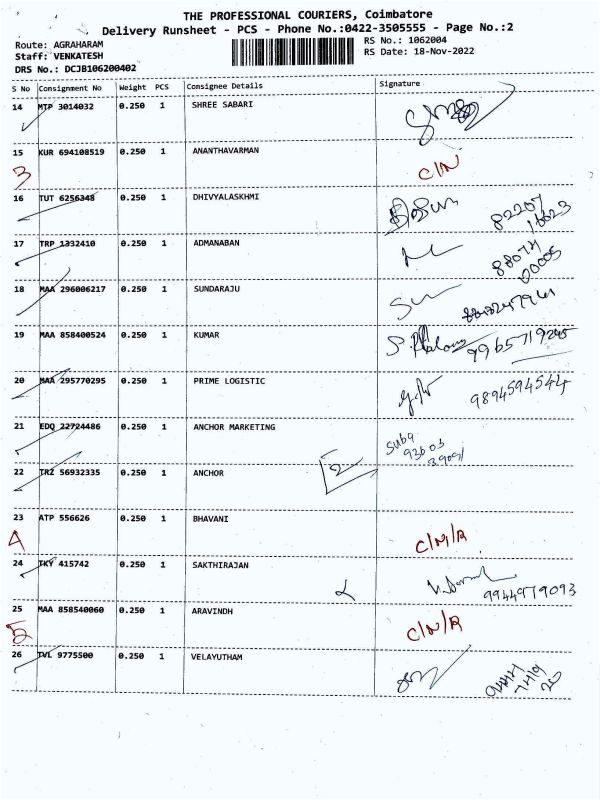 THE PROFESSIONAL COURIERS, Coimbatore
Delivery Runsheet - PCS - Phone No.:0422-3505555 - Page No.:2
Route: AGRAHARAM
RS No.: 1062004
Staff: VENKATESH
RS Date: 18-Nov-2022
DRS No.: DCJB106200402
S No Consignment No Weight PCS Consignee Details Signature
14 MTP 3014032 0.250 1 SHREE SABARI
15 KUR 694108519 0.250 1 ANANTHAVARMAN C/N
3
16 TUT 6256348 0.250 1 DHIVYALASKHMI 82207
16623
17 TRP 1332410 0.250 1 ADMANABAN 88074
00005
18 MAA 296006217 0.250 1 SUNDARAJU
19 MAA 858400524 0.250 1 KUMAR 9965719245
20 MAA 295770295 0.250 1 PRIME LOGISTIC 9894594544
21 EDQ 22724486 0.250 1 ANCHOR MARKETING
93603
22 TRZ 56932335 0.250 1 ANCHOR 2
23 ATP 556626 0.250 1 BHAVANI C/N/R
4
24 TKY 415742 0.250 1 SAKTHIRAJAN 9944979093
25 MAA 858540060 0.250 1 ARAVINDH C/N/R
5
26 TVL 9775500 0.250 1 VELAYUTHAM